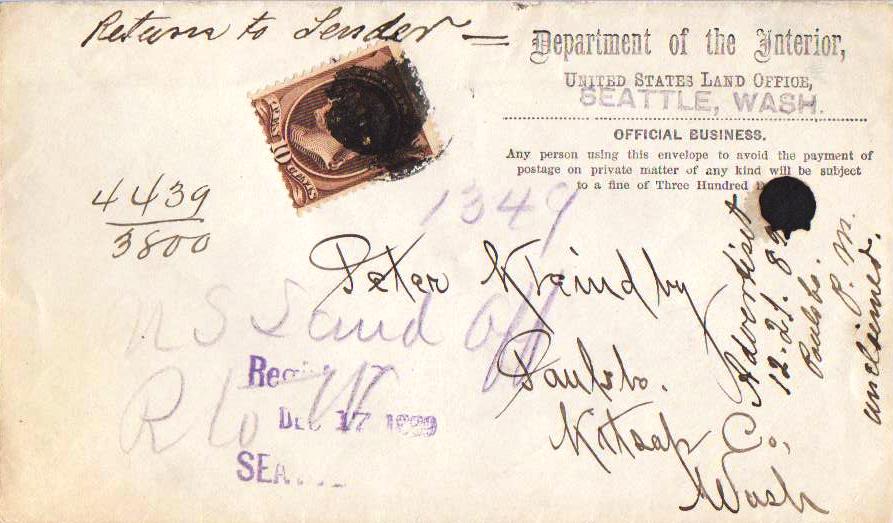 Return to Sender
Department of the Interior,
UNITED STATES LAND OFFICE,
SEATTLE, WASH.
OFFICIAL BUSINESS.
Any person using this envelope to avoid the payment of
postage on private matter of any kind will be subject
to a fine of Three Hundred
10 CENTS
4439
3800
1349
Peter
Paulsbo.
Kitsap Co,
Wash
Advertised
12-21-89
Paulsbo.
P. M.
unclaimed.
DEC 17 1889
SEA